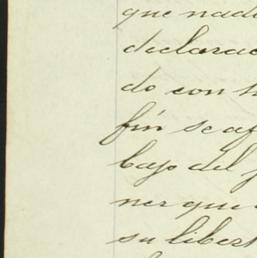 que nad
declarac
do con
fin se af
bajo del
ner que
su libert